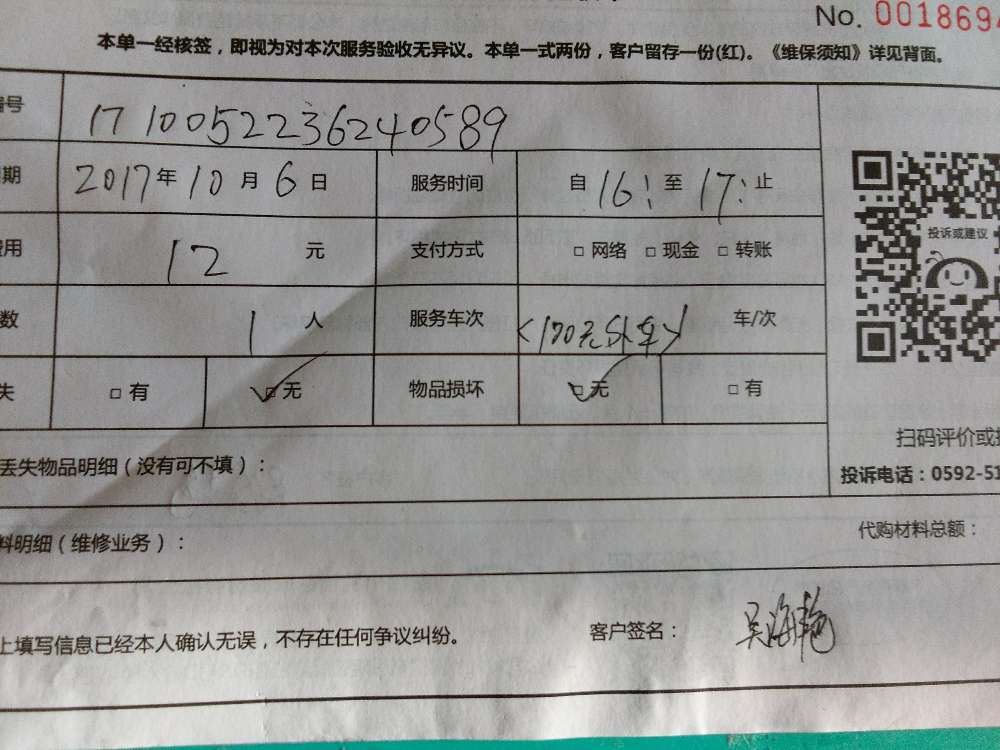 No. 001869
本单一经核签，即视为对本次服务验收无异议。本单一式两份，客户留存一份(红)。《维保须知》详见背面。
编号 17100522236240589
期 2017年10月6日 服务时间 自16:至17:止
投诉或建议
费用 12元 支付方式 □网络 □现金 □转账
数 1人 服务车次 <170元外车> 车/次
失 □有 ☑无 物品损坏 ☑无 □有
扫码评价或
丢失物品明细（没有可不填）：
投诉电话：0592-51
料明细（维修业务）： 代购材料总额：
上填写信息已经本人确认无误，不存在任何争议纠纷。 客户签名： 吴海艳